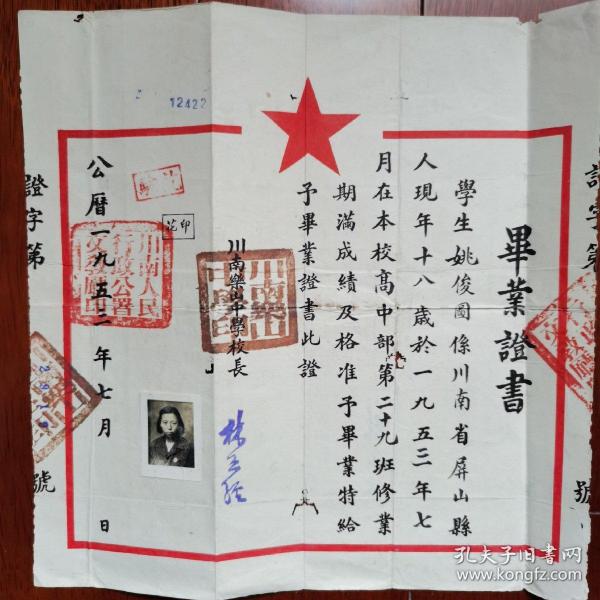 12422
畢業證書
學生姚俊國係川南省屏山縣
人現年十八歲於一九五二年七
月在本校高中部第二十九班修業
期滿成績及格准予畢業特給
予畢業證書此證
川南樂山中學校長
印花
川南人民
行政公署
文教廳印
公曆一九五二年七月 日
證字第 號
證字第 號
孔夫子旧书网
www.kongfz.com